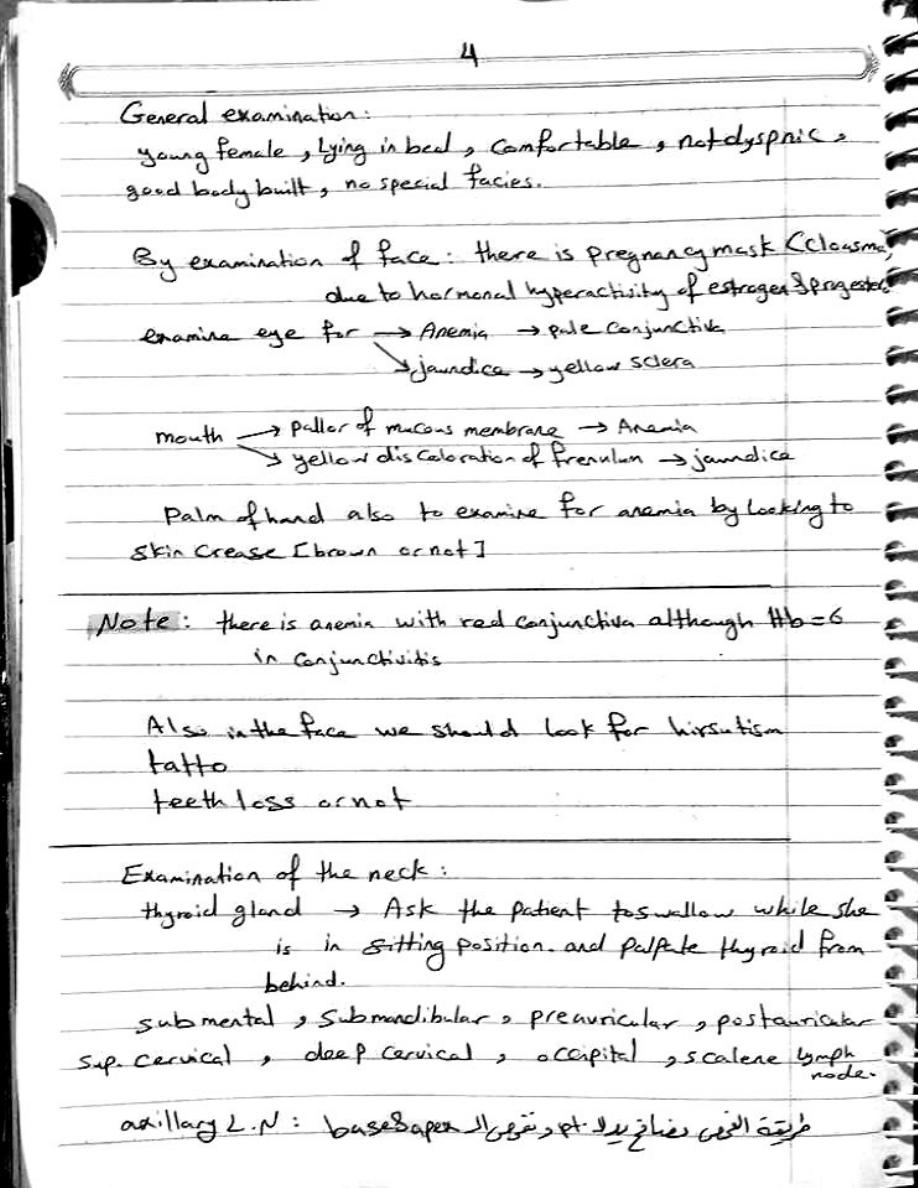 4
General examination:
young female, Lying in bed, Comfortable, not dyspnic,
good body built, no special facies.
By examination of face: there is pregnancy mask (cloasma,
due to hormonal hyperactivity of estrogen & progester
examine eye for → Anemia → pale conjunctiva
↘ jaundice → yellow sclera
mouth → pallor of mucous membrane → Anemia
↘ yellow discoloration of frenulum → jaundice
Palm of hand also to examine for anemia by looking to
skin crease [brown or not]
Note: there is anemia with red conjunctiva although Hb=6
in conjunctivitis
Also in the face we should look for hirsutism
tatto
teeth loss or not
Examination of the neck:
thyroid gland → Ask the patient to swallow while she
is in sitting position. and palpate thyroid from
behind.
submental, Submandibular, preauricular, postauricular
sup. cervical, deep cervical, occipital, scalene lymph
node.
axillary L.N: طريقة الفحص بصافح يد الـ pt. وتفحص الـ base & apex